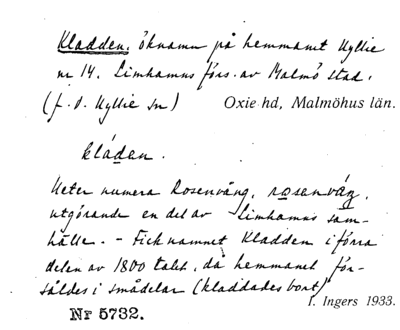 Kladden, öknamn på hemmanet Hyllie
nr 14. Limhamns förs. av Malmö stad.
(f. d. Hyllie sn) Oxie hd, Malmöhus län.
kláden.
Heter numera Rosenvång, rosenváŋ,
utgörande en del av Limhamns sam-
hälle. - Fick namnet Kladden i förra
delen av 1800 talet, då hemmanet för-
såldes i smådelar (kladdades bort)
I. Ingers 1933.
Nr 5732.